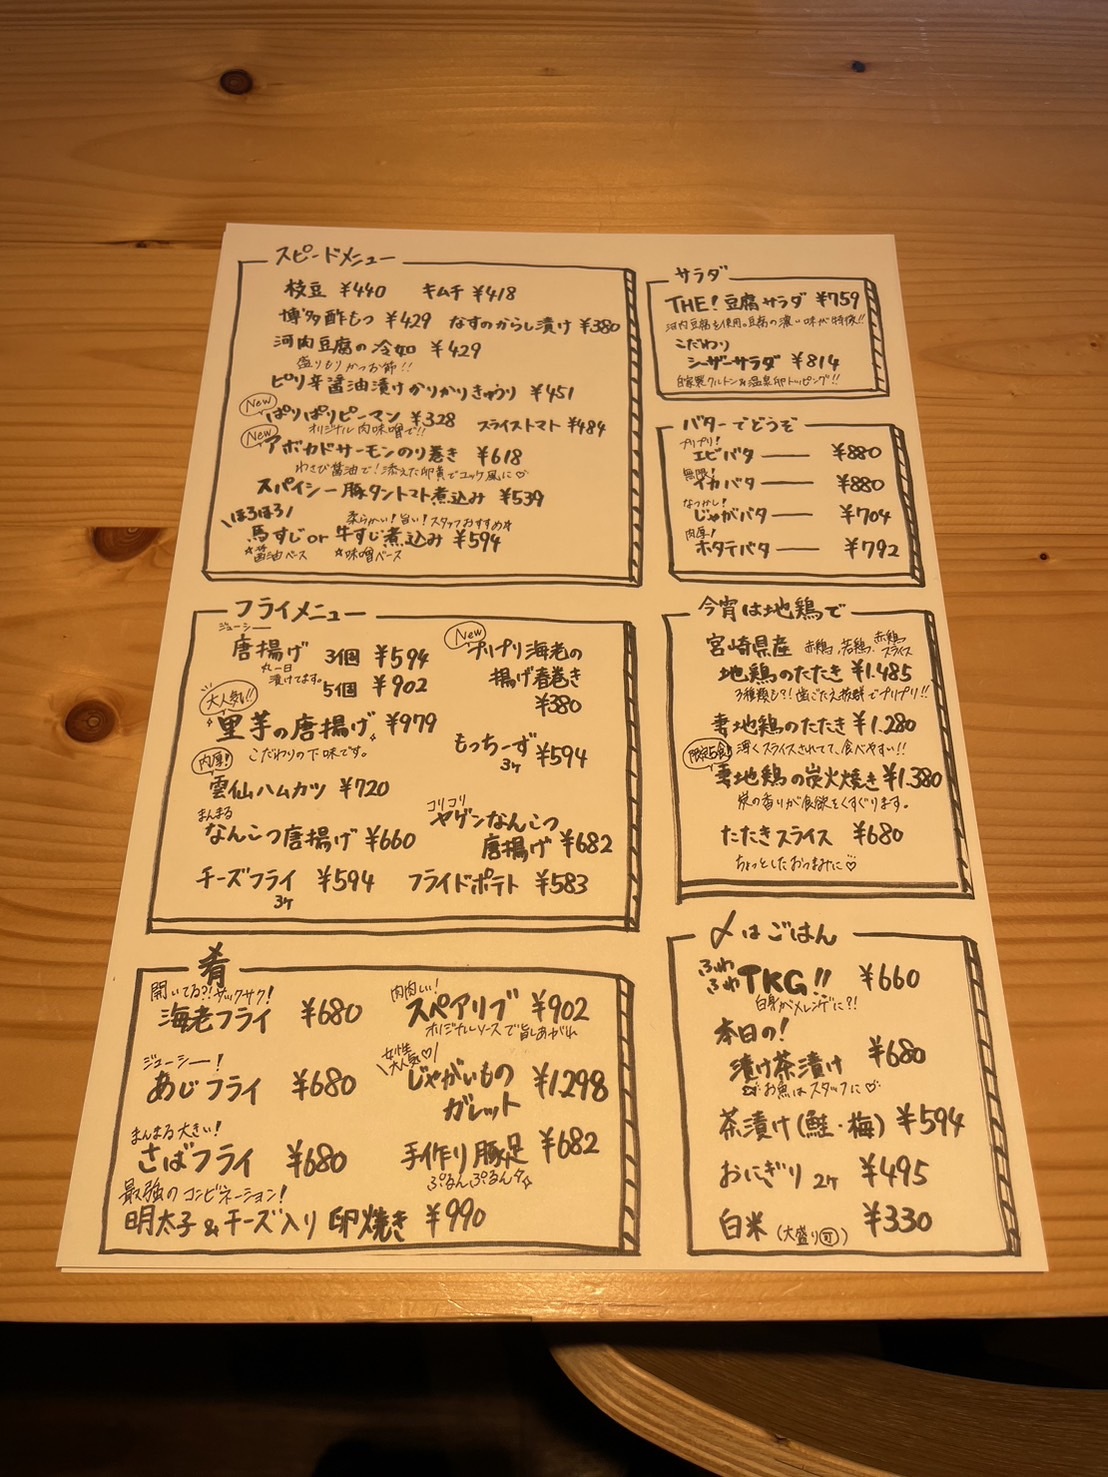 スピードメニュー
枝豆 ¥440 キムチ ¥418
博多酢もつ ¥429 なすのからし漬け ¥380
河内豆腐の冷奴 ¥429
盛りもりかつお節!!
ピリ辛醤油漬けかりかりきゅうり ¥451
New ぱりぱりピーマン ¥328 スライストマト ¥484
オリジナル肉味噌で!!
New アボカドサーモンのり巻き ¥618
わさび醤油で!添えた卵黄でユッケ風に♡
スパイシー豚タントマト煮込み ¥539
\ほろほろ/ 柔らかい!旨い!スタッフおすすめ☆
馬すじor牛すじ煮込み ¥594
☆醤油ベース ☆味噌ベース
サラダ
THE!豆腐サラダ ¥759
河内豆腐を使用。豆腐の濃い味が特徴!!
こだわり
シーザーサラダ ¥814
自家製クルトン&温泉卵トッピング!!
バターでどうぞ
プリプリ!
エビバター ¥880
無限!
イカバター ¥880
なつかし!
じゃがバター ¥704
肉厚!
ホタテバター ¥792
フライメニュー
ジューシー
唐揚げ 3個 ¥594
丸一日漬けてます。 5個 ¥902
大人気!!
里芋の唐揚げ ¥979
こだわりの下味です。
肉厚!
雲仙ハムカツ ¥720
まんまる
なんこつ唐揚げ ¥660
チーズフライ ¥594
3ケ
New プリプリ海老の
揚げ春巻き
¥380
もっちーず ¥594
3ケ
コリコリ
ヤゲンなんこつ
唐揚げ ¥682
フライドポテト ¥583
今宵は地鶏で
宮崎県産 赤鶏,若鶏,赤鶏スライス
地鶏のたたき ¥1.485
3種類も?!歯ごたえ抜群でプリプリ!!
妻地鶏のたたき ¥1.280
薄くスライスされてて、食べやすい!!
限定5食!
妻地鶏の炭火焼き ¥1.380
炭の香りが食欲をくすぐります。
たたきスライス ¥680
ちょっとしたおつまみに♡
肴
開いてる?!ザックサク!
海老フライ ¥680
ジューシー!
あじフライ ¥680
まんまる大きい!
さばフライ ¥680
最強のコンビネーション!
明太子&チーズ入り卵焼き ¥990
肉肉しい!
スペアリブ ¥902
オリジナルソースで召しあがれ
\女性大人気♡/
じゃがいもの
ガレット ¥1.298
手作り豚足 ¥682
ぷるんぷるんダ☆
〆はごはん
ふわふわTKG!! ¥660
白身がメレンゲに?!
本日の!
漬け茶漬け ¥680
お魚はスタッフに♡
茶漬け(鮭・梅) ¥594
おにぎり 2ケ ¥495
白米(大盛り可) ¥330